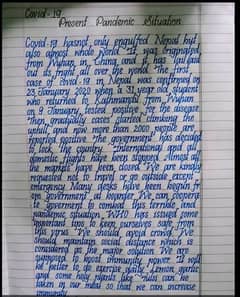 Covid-19
Present Pandemic Situation
Covid-19 hasnot only engulfed Nepal but
also almost whole world. It was originated
from Wuhan, in China, and it has spread
out its fright all over the world. The first
case of covid-19 in Nepal was confirmed on
23 January 2020 when a 31 year old student
who returned to Kathmandu from Wuhan
on 9 January, tested positive for the disease.
Then gradually cases started climbing the
uphill, and now more than 2000 people are
reported positive. The government has decided
to lock the country. International and all
domestic flights have been stopped. Almost all
the markets have been closed. We are kindly
requested not to important or go outside except
emergency. Many desks have been kept in
government hospital. We can cooperate
government to combat this terrible and
pandemic situation. WHO has issued some
important tips to keep ourselves safe from
this virus. We should avoid crowd. We
should maintain social distance which is
considered as the major solution. We are
supposed to boost immunity power. It will
be better to do exercise daily. Lemon, garlic
and some holy plants like Tulsi can be
taken in our meal so that we can increase
immunity